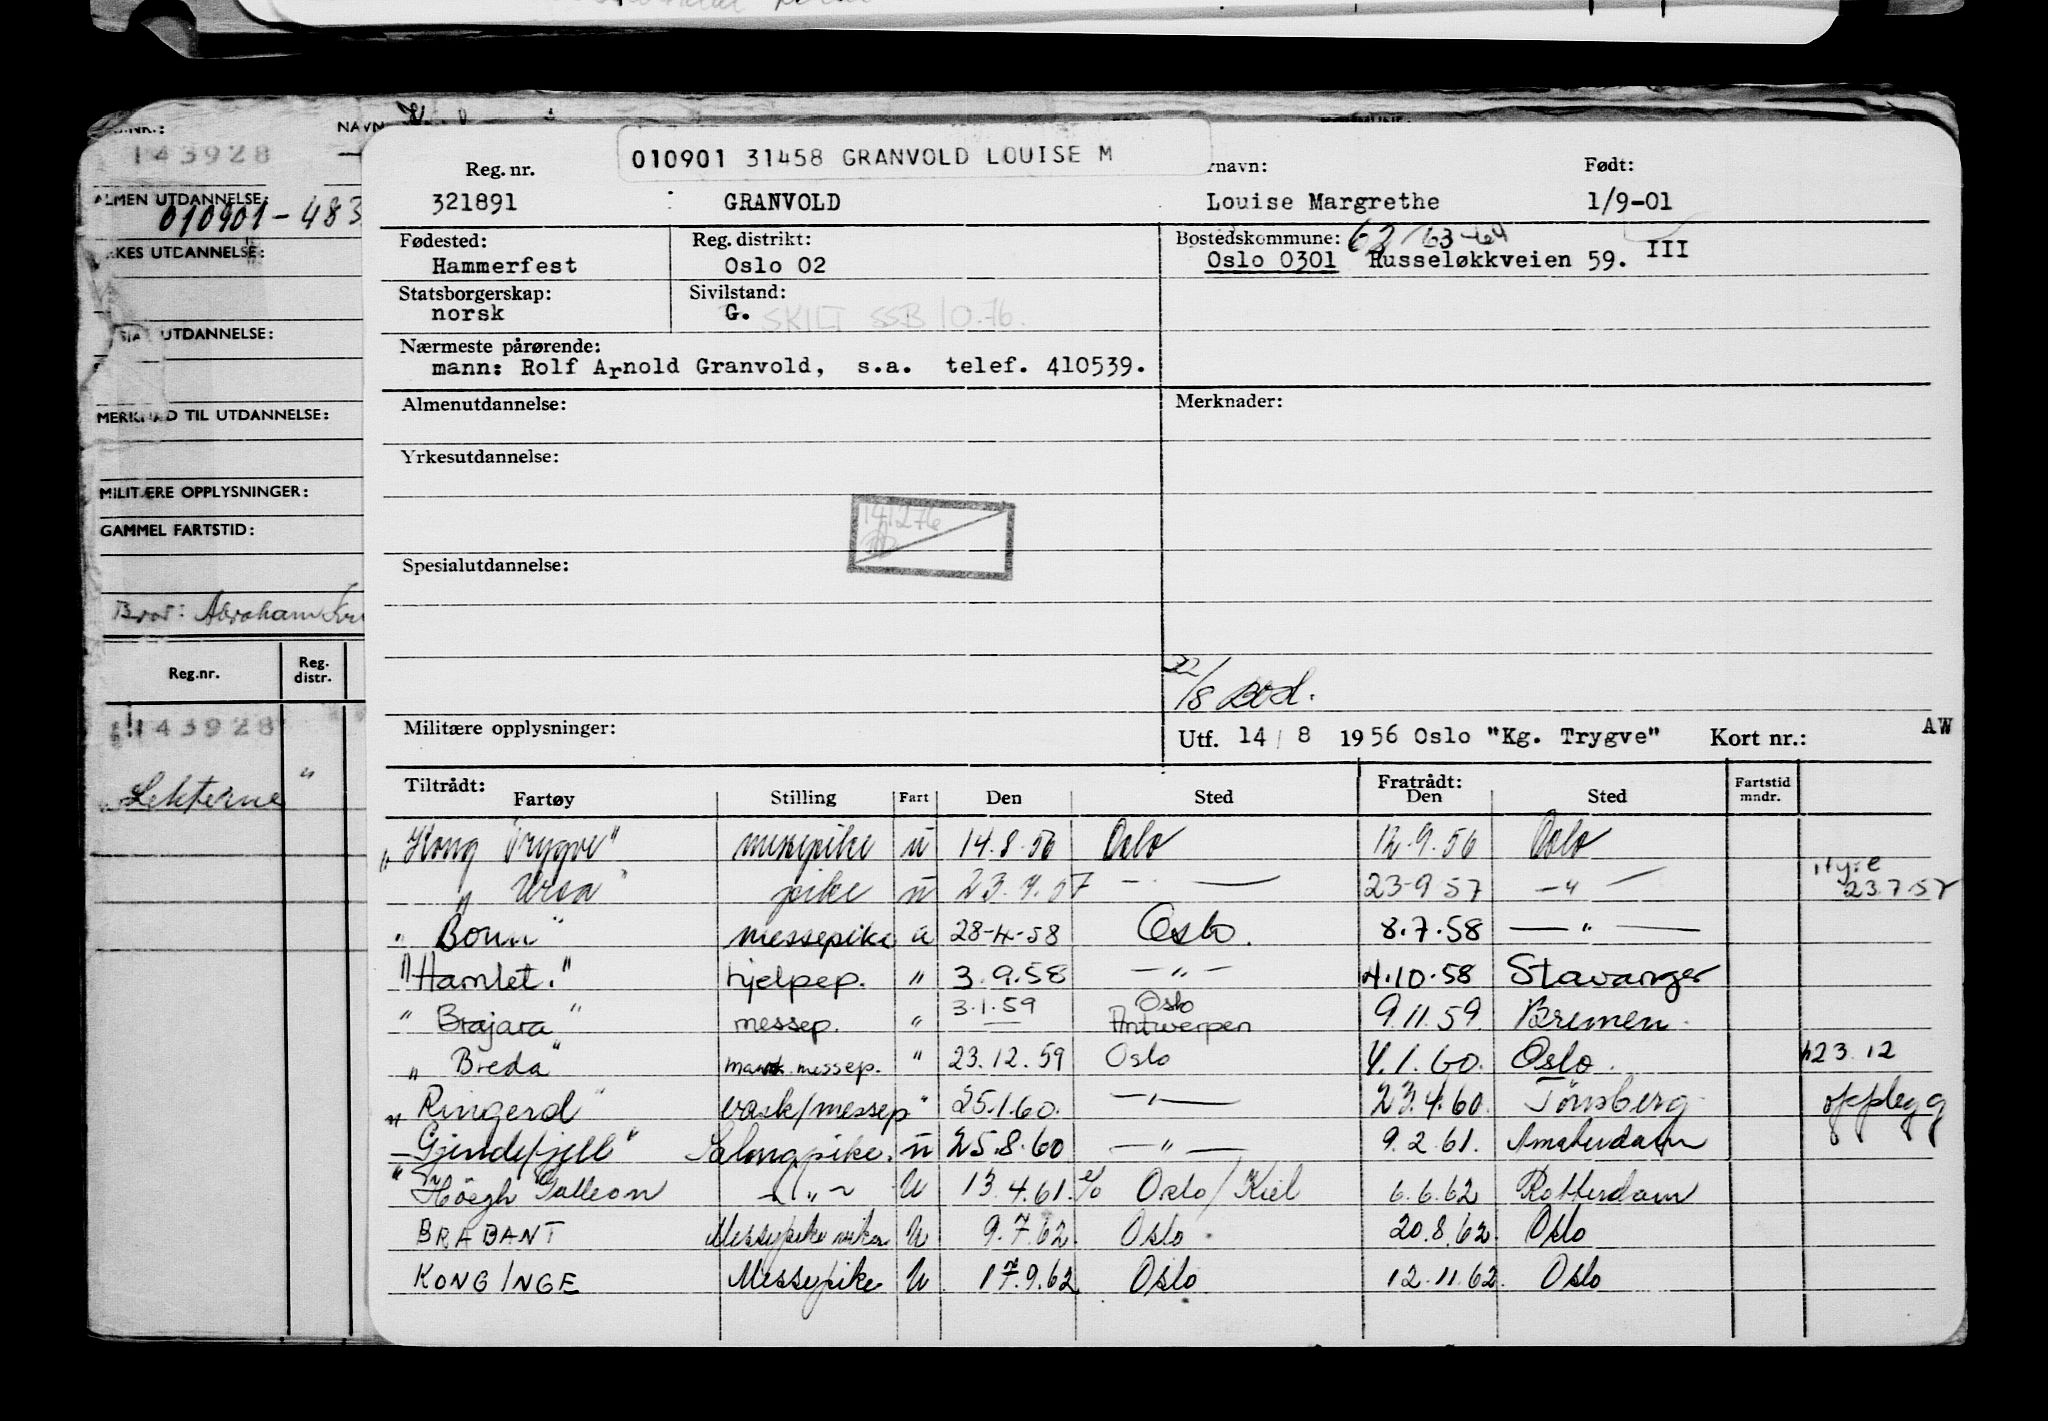 143928
NAVN
010901 31458 GRANVOLD LOUISE M
Reg. nr. rnavn: Født:
321891 GRANVOLD Louise Margrethe 1/9-01
ALMEN UTDANNELSE:
010901-483
Fødested: Reg. distrikt: Bostedskommune: 62/63-64
Hammerfest Oslo 02 Oslo 0301 Russeløkkveien 59. III
KES UTDANNELSE:
Statsborgerskap: Sivilstand:
norsk G. SKILT SSB 10.76.
UTDANNELSE:
Nærmeste pårørende:
mann: Rolf Arnold Granvold, s.a. telef. 410539.
Almenutdannelse: Merknader:
MERKNAD TIL UTDANNELSE:
Yrkesutdannelse:
MILITÆRE OPPLYSNINGER:
GAMMEL FARTSTID:
141276
Spesialutdannelse:
Bror: Abraham
Reg.nr. Reg. distr.
22/8 Bod.
143928
Militære opplysninger: Utf. 14/8 1956 Oslo "Kg. Trygve" Kort nr.: AW
Lekterne "
Tiltrådt: Fratrådt:
Fartøy Stilling Fart Den Sted Den Sted Fartstid mndr.
"Kong Trygve" messepike u 14.8.56 Oslo 12.9.56 Oslo
" Ursa" pike u 23.7.57 — " — 23-9 57 — " — Hyre 23.7.57
" Bonn" messepike u 28-4-58 Oslo. 8.7.58 — " —
"Hamlet." hjelpep. " 3.9.58 — " — 4.10.58 Stavanger
" Brajara " messep. " 3.1.59 Oslo Antwerpen 9.11.59 Bremen.
" Breda" messep. " 23.12.59 Oslo 4.1.60. Oslo. h23.12
" Ringerd" vask/messep " 25.1.60. — " — 23.4.60. Tönsberg opplegg
"Gjendefjell" Salongpike. u 25.8.60 — " — 9.2.61. Amsterdam
" Höegh Galleon — " — U 13.4.61. Oslo/Kiel 6.6.62 Rotterdam
BRABANT Messepike vikar U 9.7.62. Oslo. 20.8.62. Oslo
KONG INGE Messepike U 17.9.62 Oslo 12.11.62. Oslo